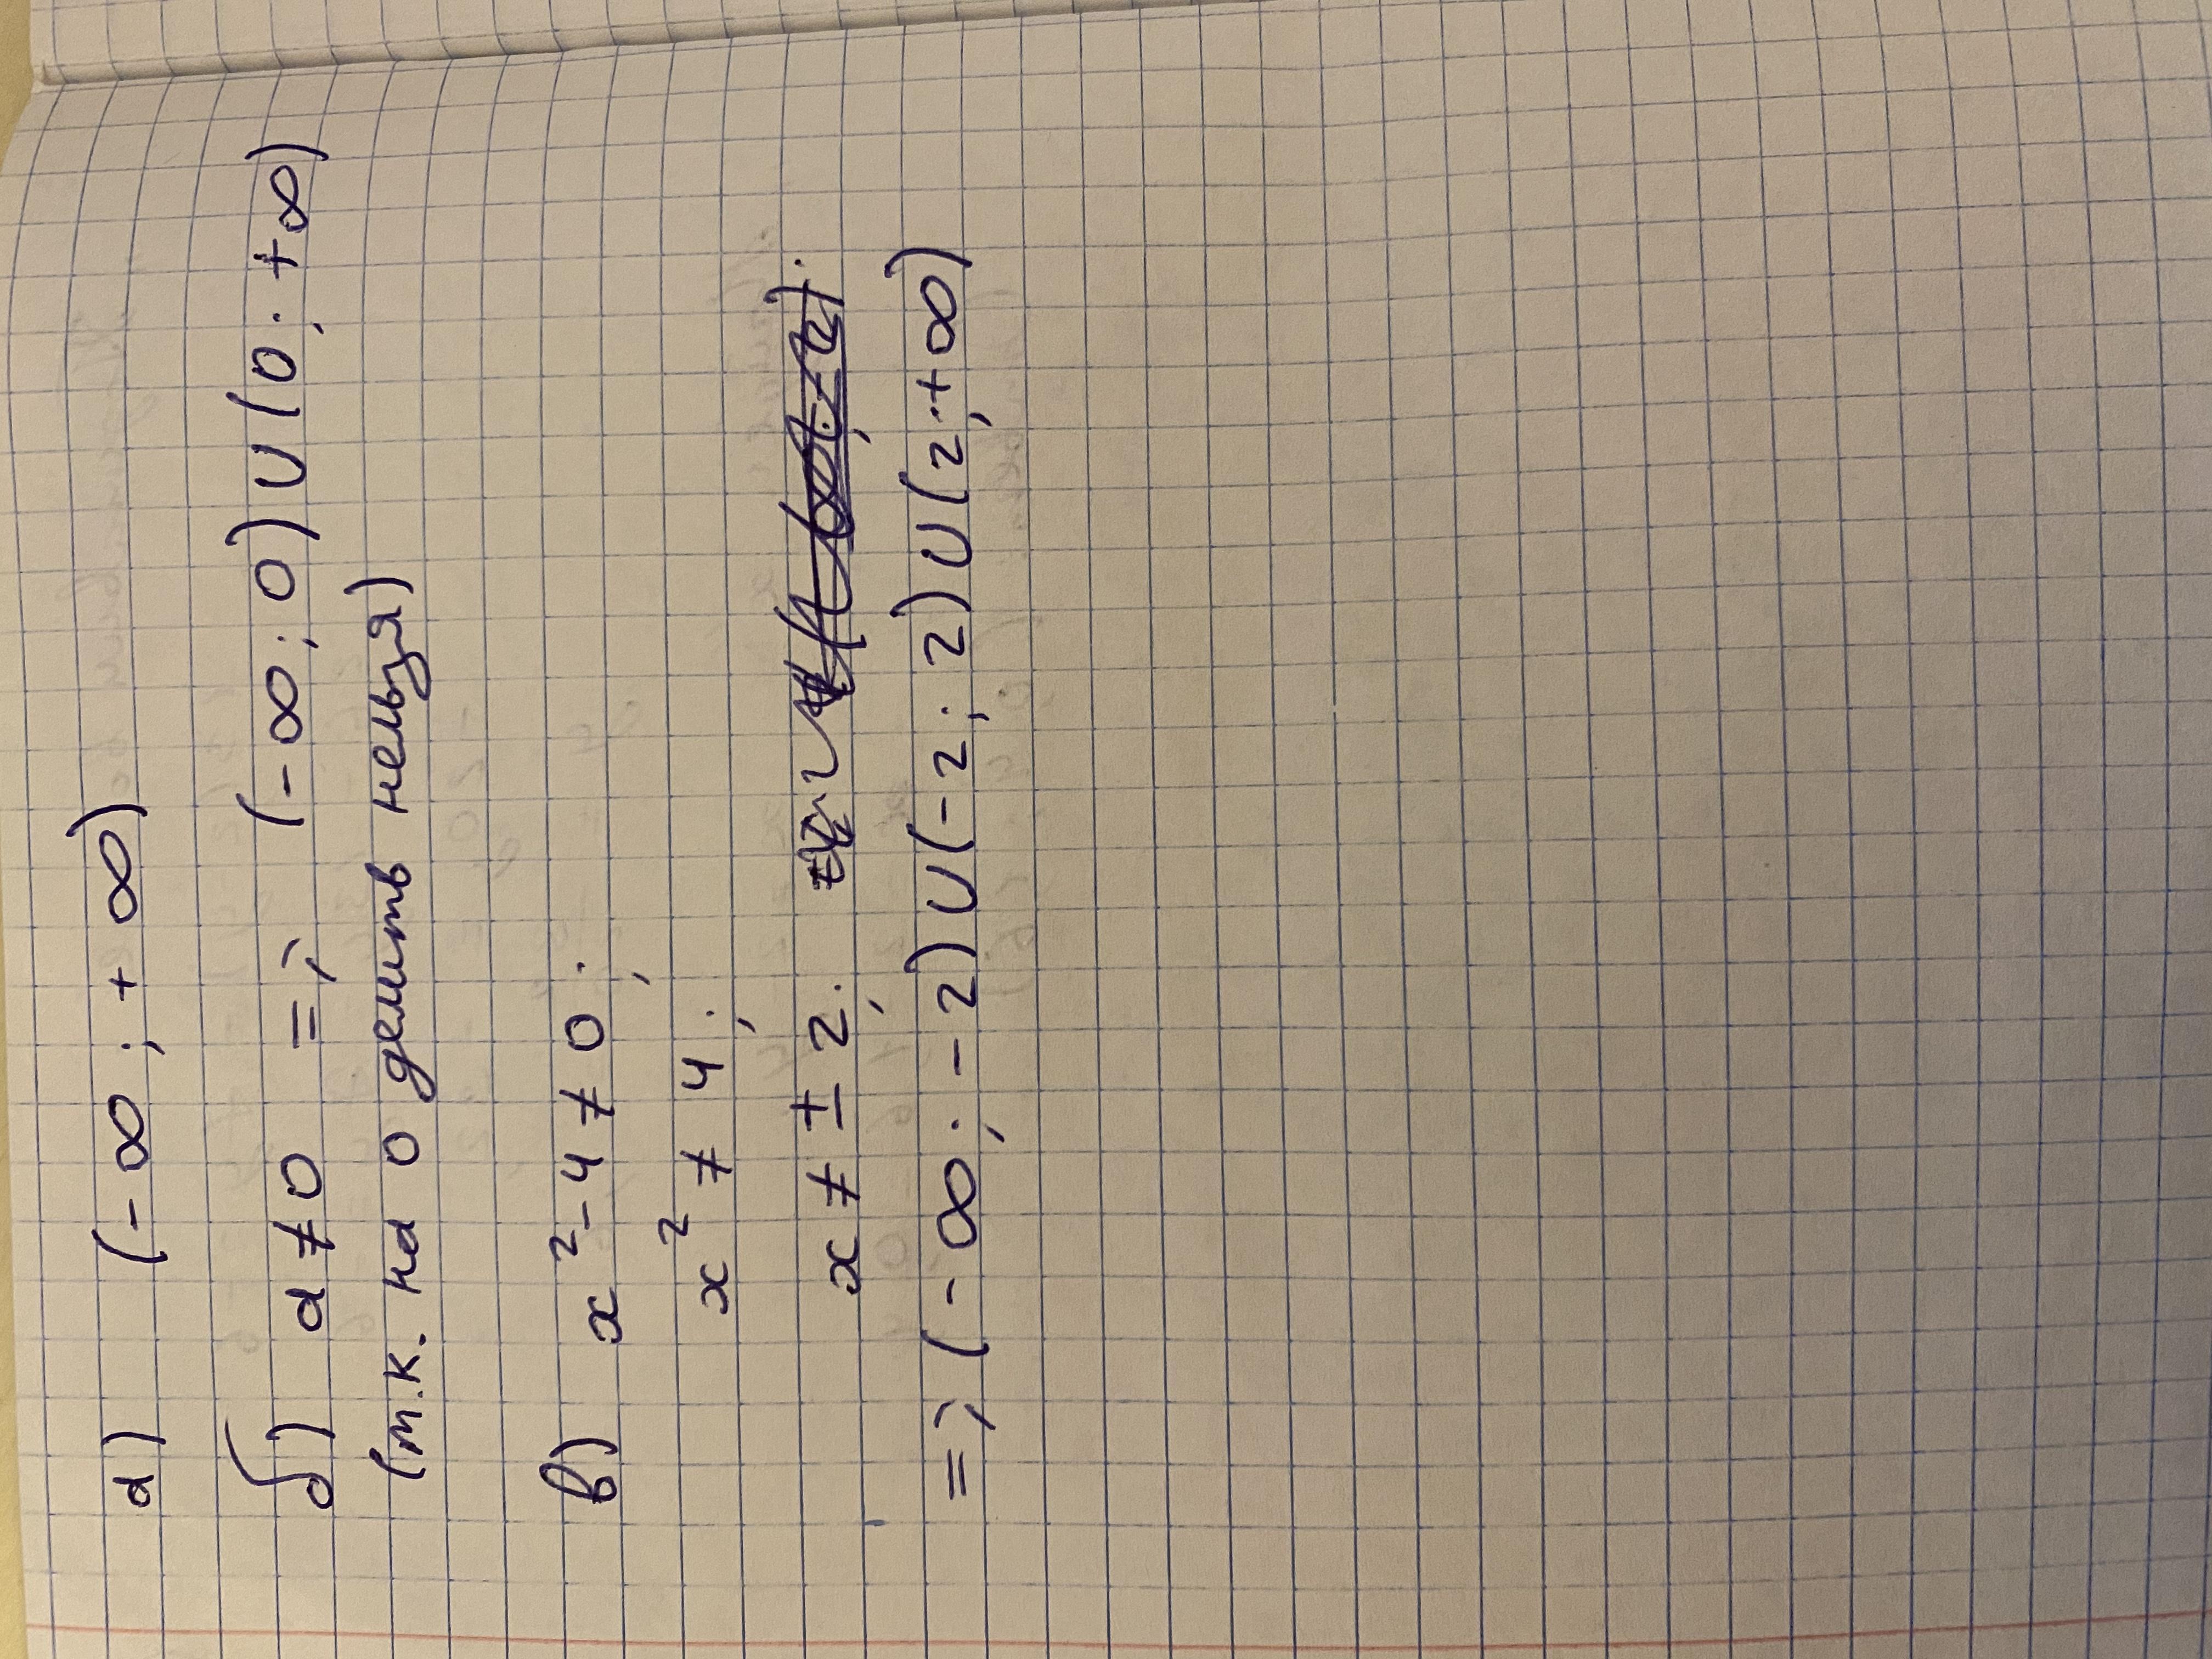 а) (-∞; +∞)
б) a≠0 => (-∞; 0)∪(0; +∞)
(т.к. на 0 делить нельзя)
в) x²-4≠0;
x²≠4;
x≠±2;
=> (-∞; -2)∪(-2; 2)∪(2; +∞)